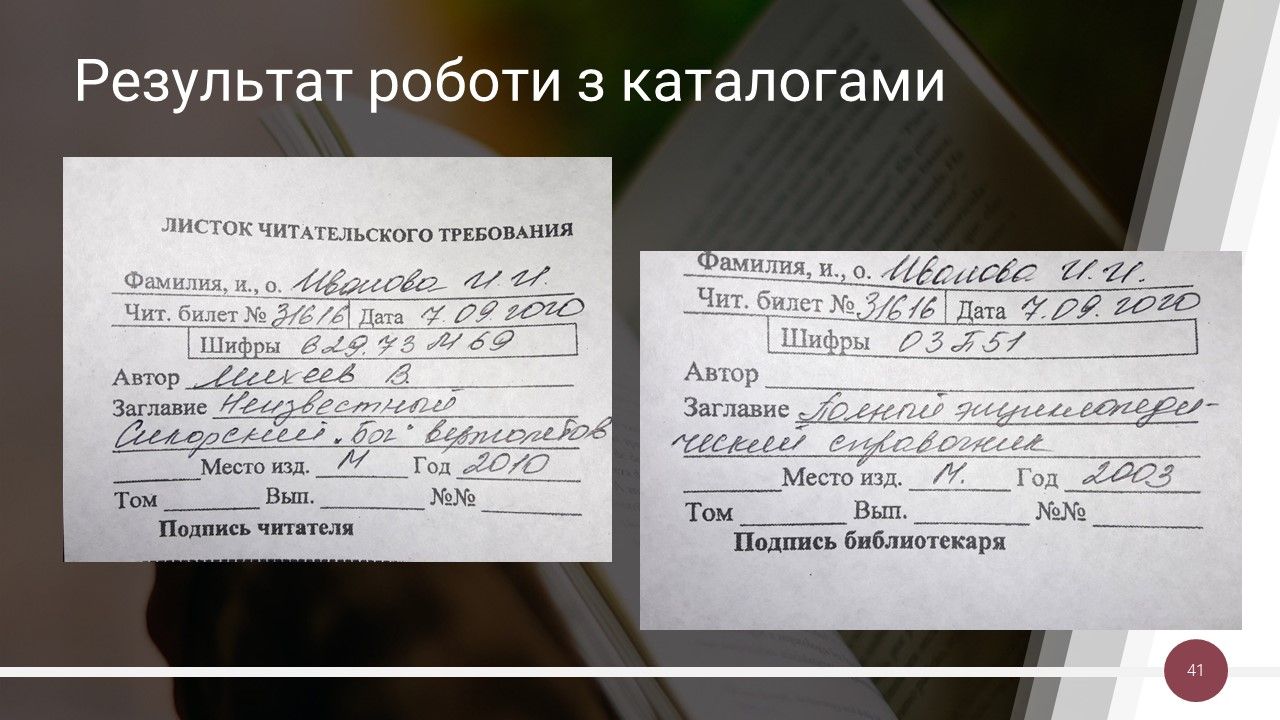 Результат роботи з каталогами
ЛИСТОК ЧИТАТЕЛЬСКОГО ТРЕБОВАНИЯ
Фамилия, и., о. Иванова И.И.
Чит. билет № 31616 Дата 7.09.2020
Шифры 629.73 М69
Автор Михеев В.
Заглавие Неизвестный
Сикорский „Бог" вертолетов
Место изд. М Год 2010
Том Вып. №№
Подпись читателя
Фамилия, и., о. Иванова И.И.
Чит. билет № 31616 Дата 7.09.2020
Шифры 03 П51
Автор
Заглавие Полный энциклопеди-
ческий справочник
Место изд. М. Год 2003
Том Вып. №№
Подпись библиотекаря
41